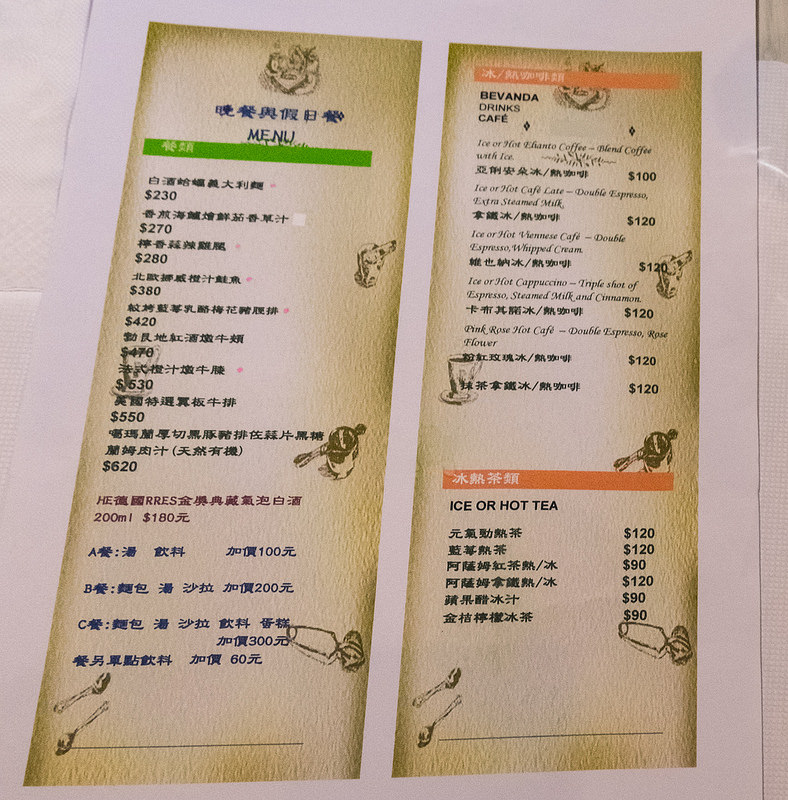 晚餐與假日餐
MENU
餐類
白酒蛤蠣義大利麵
$230
香煎海鱸燴鮮茄香草汁
$270
檸香蒜辣雞腿
$280
北歐挪威橙汁鮭魚
$380
炆烤藍莓乳酪梅花豬脛排
$420
勃艮地紅酒燉牛頰
$470
法式橙汁燉牛膝
$530
美國特選翼板牛排
$550
噶瑪蘭厚切黑豚豬排佐蒜片黑糖
蘭姆肉汁(天然有機)
$620
HE德國RRES金獎典藏氣泡白酒
200ml $180元
A餐:湯 飲料 加價100元
B餐:麵包 湯 沙拉 加價200元
C餐:麵包 湯 沙拉 飲料 蛋糕
加價300元
餐另單點飲料 加價 60元
冰/熱咖啡類
BEVANDA
DRINKS
CAFÉ
Ice or Hot Elianto Coffee – Blend Coffee
with Ice.
亞俐安朵冰/熱咖啡 $100
Ice or Hot Café Late – Double Espresso,
Extra Steamed Milk.
拿鐵冰/熱咖啡 $120
Ice or Hot Viennese Café – Double
Espresso,Whipped Cream.
維也納冰/熱咖啡 $120
Ice or Hot Cappuccino – Triple shot of
Espresso, Steamed Milk and Cinnamon.
卡布其諾冰/熱咖啡 $120
Pink Rose Hot Café – Double Espresso, Rose
Flower
粉紅玫瑰冰/熱咖啡 $120
抹茶拿鐵冰/熱咖啡 $120
冰熱茶類
ICE OR HOT TEA
元氣動熱茶 $120
藍莓熱茶 $120
阿薩姆紅茶熱/冰 $90
阿薩姆拿鐵熱/冰 $120
蘋果醋冰汁 $90
金桔檸檬冰茶 $90